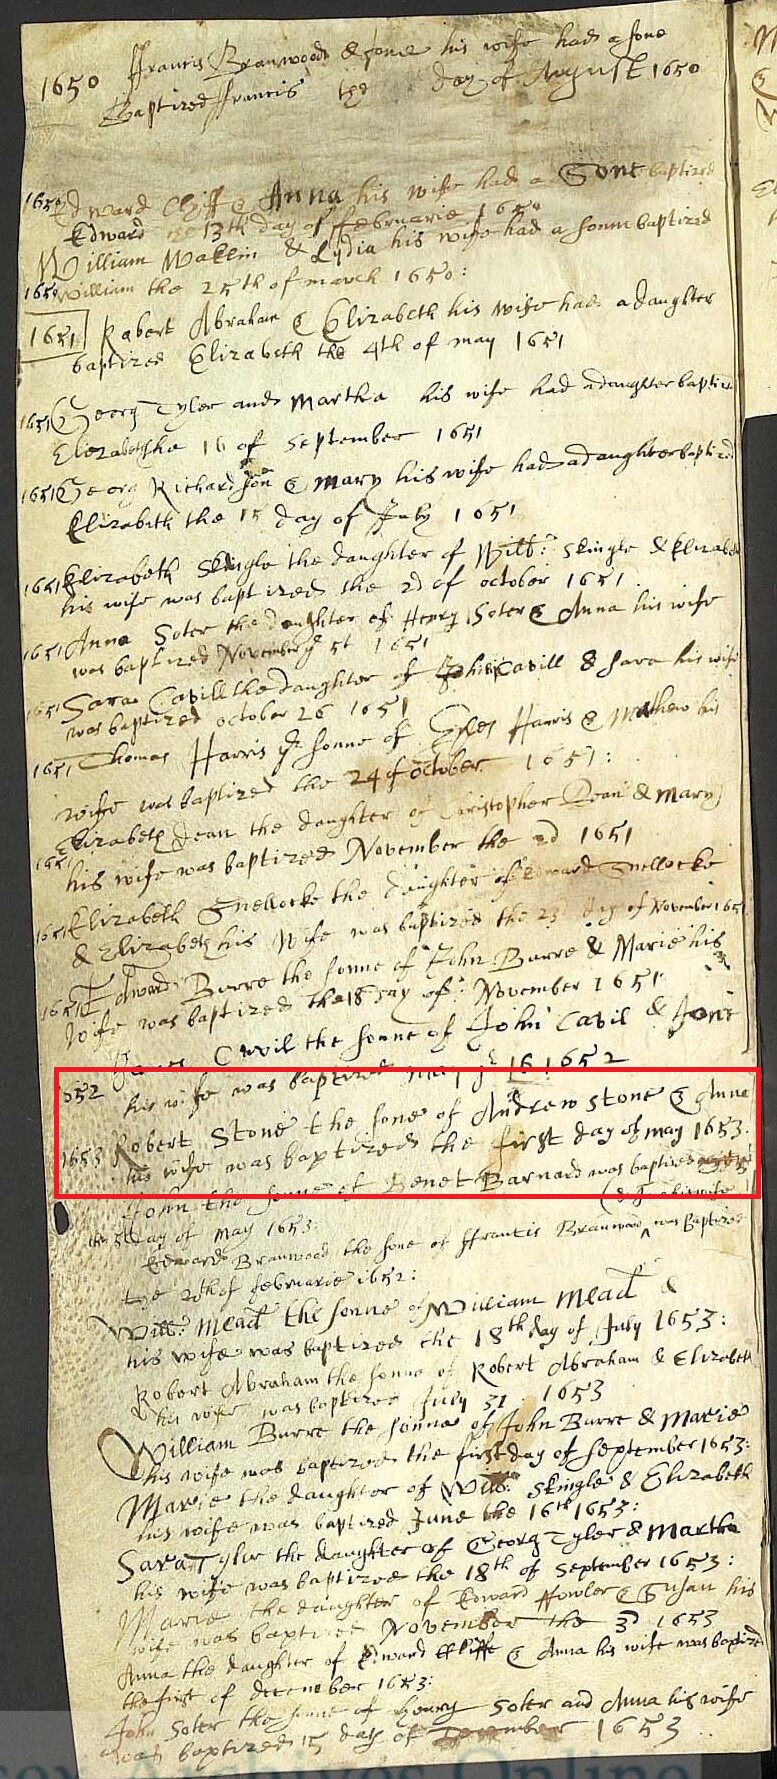 1650 ffrancis Branwood & Jone his wife had a sone
Baptized ffrancis the day of August 1650
1650 Edward Cliff & Anna his wife had a Sone baptized
Edward the 13th day of ffebruarie 1650
William Wallin & Lydia his wife had a sonn baptized
1650 William the 25th of march 1650:
1651 Robert Abraham & Elizabeth his wife had a daughter
baptized Elizabeth the 4th of may 1651
1651 Georg Tyler and Martha his wife had a daughter baptized
Elizabeth the 16 of September 1651
1651 Georg Richardson & mary his wife had a daughter baptized
Elizabeth the 15 day of July 1651
1651 Elizabeth Skingle the daughter of Will: Skingle & Elizabeth
his wife was baptized the 2d of october 1651
1651 Anna Soter the daughter of Henry Soter & Anna his wife
was baptized November ye 5t 1651
1651 Sara Cavill the daughter of John Cavill & Sara his wife
was baptized october 26 1651
1651 Thomas Harris ye sonne of Gyles Harris & Mathew his
wife was baptized the 24 of october 1651:
1651 Elizabeth Dean the daughter of Christopher Dean & mary
his wife was baptized November the 2d 1651
1651 Elizabeth Snellocke the daughter of Edward Snellocke
& Elizabeth his Wife was baptized the 23 day of November 1651
1651 Edward Burre the sonne of John Burre & Marie his
wife was baptized the 18 day of: November 1651
James Cavil the sonne of John Cavil & Jone
1652 his wife was baptized may ye 16 1652
Robert Stone the sone of Andrew Stone & Anne
1653 his wife was baptized the first day of may 1653.
John the sonne of Benet Barnard was baptized
the 5t day of May 1653: his wife
Edward Branwood the sone of ffrancis Branwood was Baptized
the of februarie 1652:
Will: Mead the sonne of William Mead &
his wife was baptized the 18th day of July 1653:
Robert Abraham the sonne of Robert Abraham & Elizabeth
his wife was baptized July 31 1653
William Burre the sonne of John Burre & Marie
his wife was baptized the first day of September 1653:
Marie the daughter of Will: Skingle & Elizabeth
his wife was baptized June the 16th 1653:
Sara Tyler the daughter of Georg Tyler & Martha
his wife was baptized the 18th of September 1653:
Marie the daughter of Edward ffowler & Susan his
wife was baptized November the 3d 1653
Anna the daughter of Edward Cliffe & Anna his wife was baptized
the first of december 1653:
John Soter the sonne of Henry Soter and Anna his wife
was baptized 15 day of December 1653
sex Archives Online